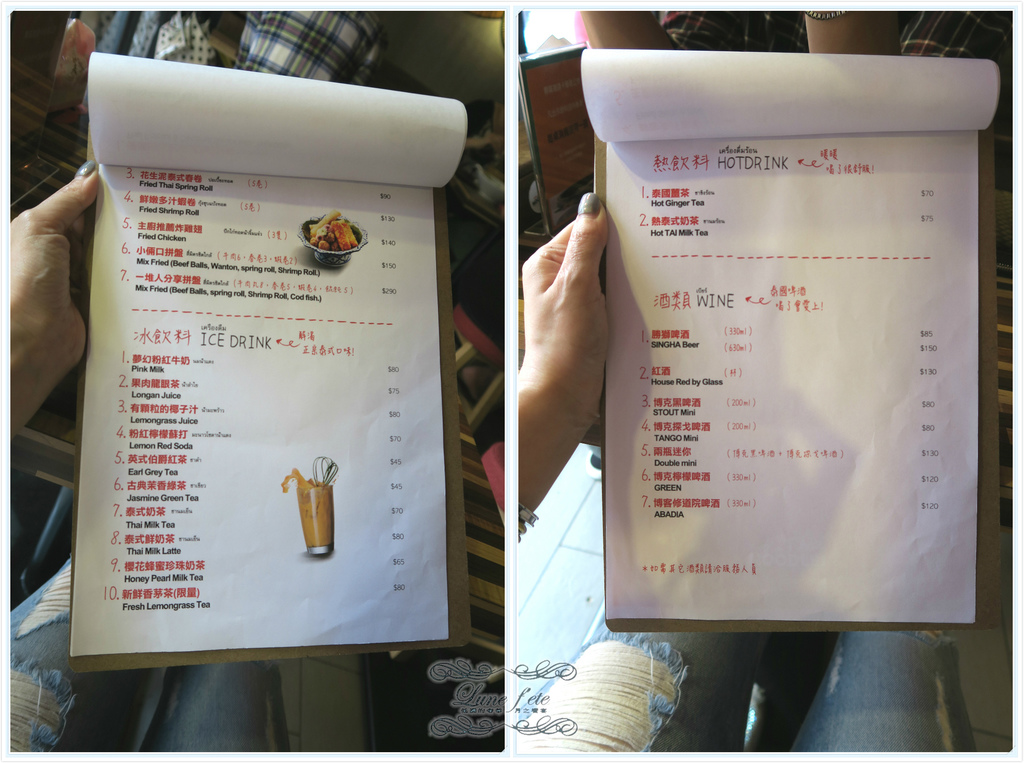 3. 花生泥泰式春卷 (3卷)
Fried Thai Spring Roll $90
4. 鮮嫩多汁蝦卷 (3卷)
Fried Shrimp Roll $130
5. 主廚推薦炸雞翅 (3隻)
Fried Chicken $140
6. 小倆口拼盤
Mix Fried (Beef Balls, Wanton, spring roll, Shrimp Roll.) $150
7. 一堆人分享拼盤
Mix Fried (Beef Balls, spring Roll, Shrimp Roll, Cod fish.) $290
冰飲料 เครื่องดื่ม ICE DRINK 解渴
正泉泰式口味!
1. 夢幻粉紅牛奶 นมน้ำแดง $80
Pink Milk
2. 果肉龍眼茶 น้ำลำไย $75
Longan Juice
3. 有顆粒的椰子汁 น้ำมะพร้าว $80
Lemongrass Juice
4. 粉紅檸檬蘇打 $70
Lemon Red Soda
5. 英式伯爵紅茶 ชาดำ $45
Earl Grey Tea
6. 古典茉香綠茶 ชาเขียว $45
Jasmine Green Tea
7. 泰式奶茶 ชานมเย็น $70
Thai Milk Tea
8. 泰式鮮奶茶 ชานมเย็น $80
Thai Milk Latte
9. 櫻花蜂蜜珍珠奶茶 $65
Honey Pearl Milk Tea
10. 新鮮香茅茶(限量) $80
Fresh Lemongrass Tea
熱飲料 เครื่องดื่มร้อน HOTDRINK 暖暖
喝了很舒服!
1. 泰國薑茶 ชาขิงร้อน $70
Hot Ginger Tea
2. 熱泰式奶茶 ชานมร้อน $75
Hot TAI Milk Tea
酒類 เบียร์ WINE 泰國啤酒
喝了會愛上!
1. 勝獅啤酒 (330ml) $85
SINGHA Beer (630ml) $150
2. 紅酒 (杯) $130
House Red by Glass
3. 博克黑啤酒 (200ml) $80
STOUT Mini
4. 博克探戈啤酒 (200ml) $80
TANGO Mini
5. 兩瓶迷你 (博克黑啤酒+博克探戈啤酒) $130
Double mini
6. 博克檸檬啤酒 (330ml) $120
GREEN
7. 博客修道院啤酒 (330ml) $120
ABADIA
*如需其它酒類請洽服務人員
Lune f'ete